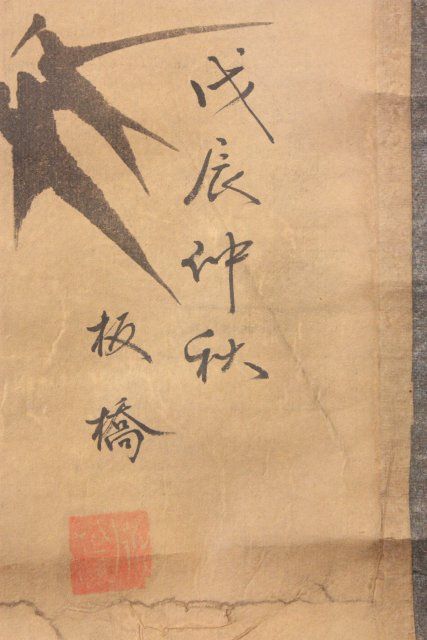 戊辰仲秋
板橋